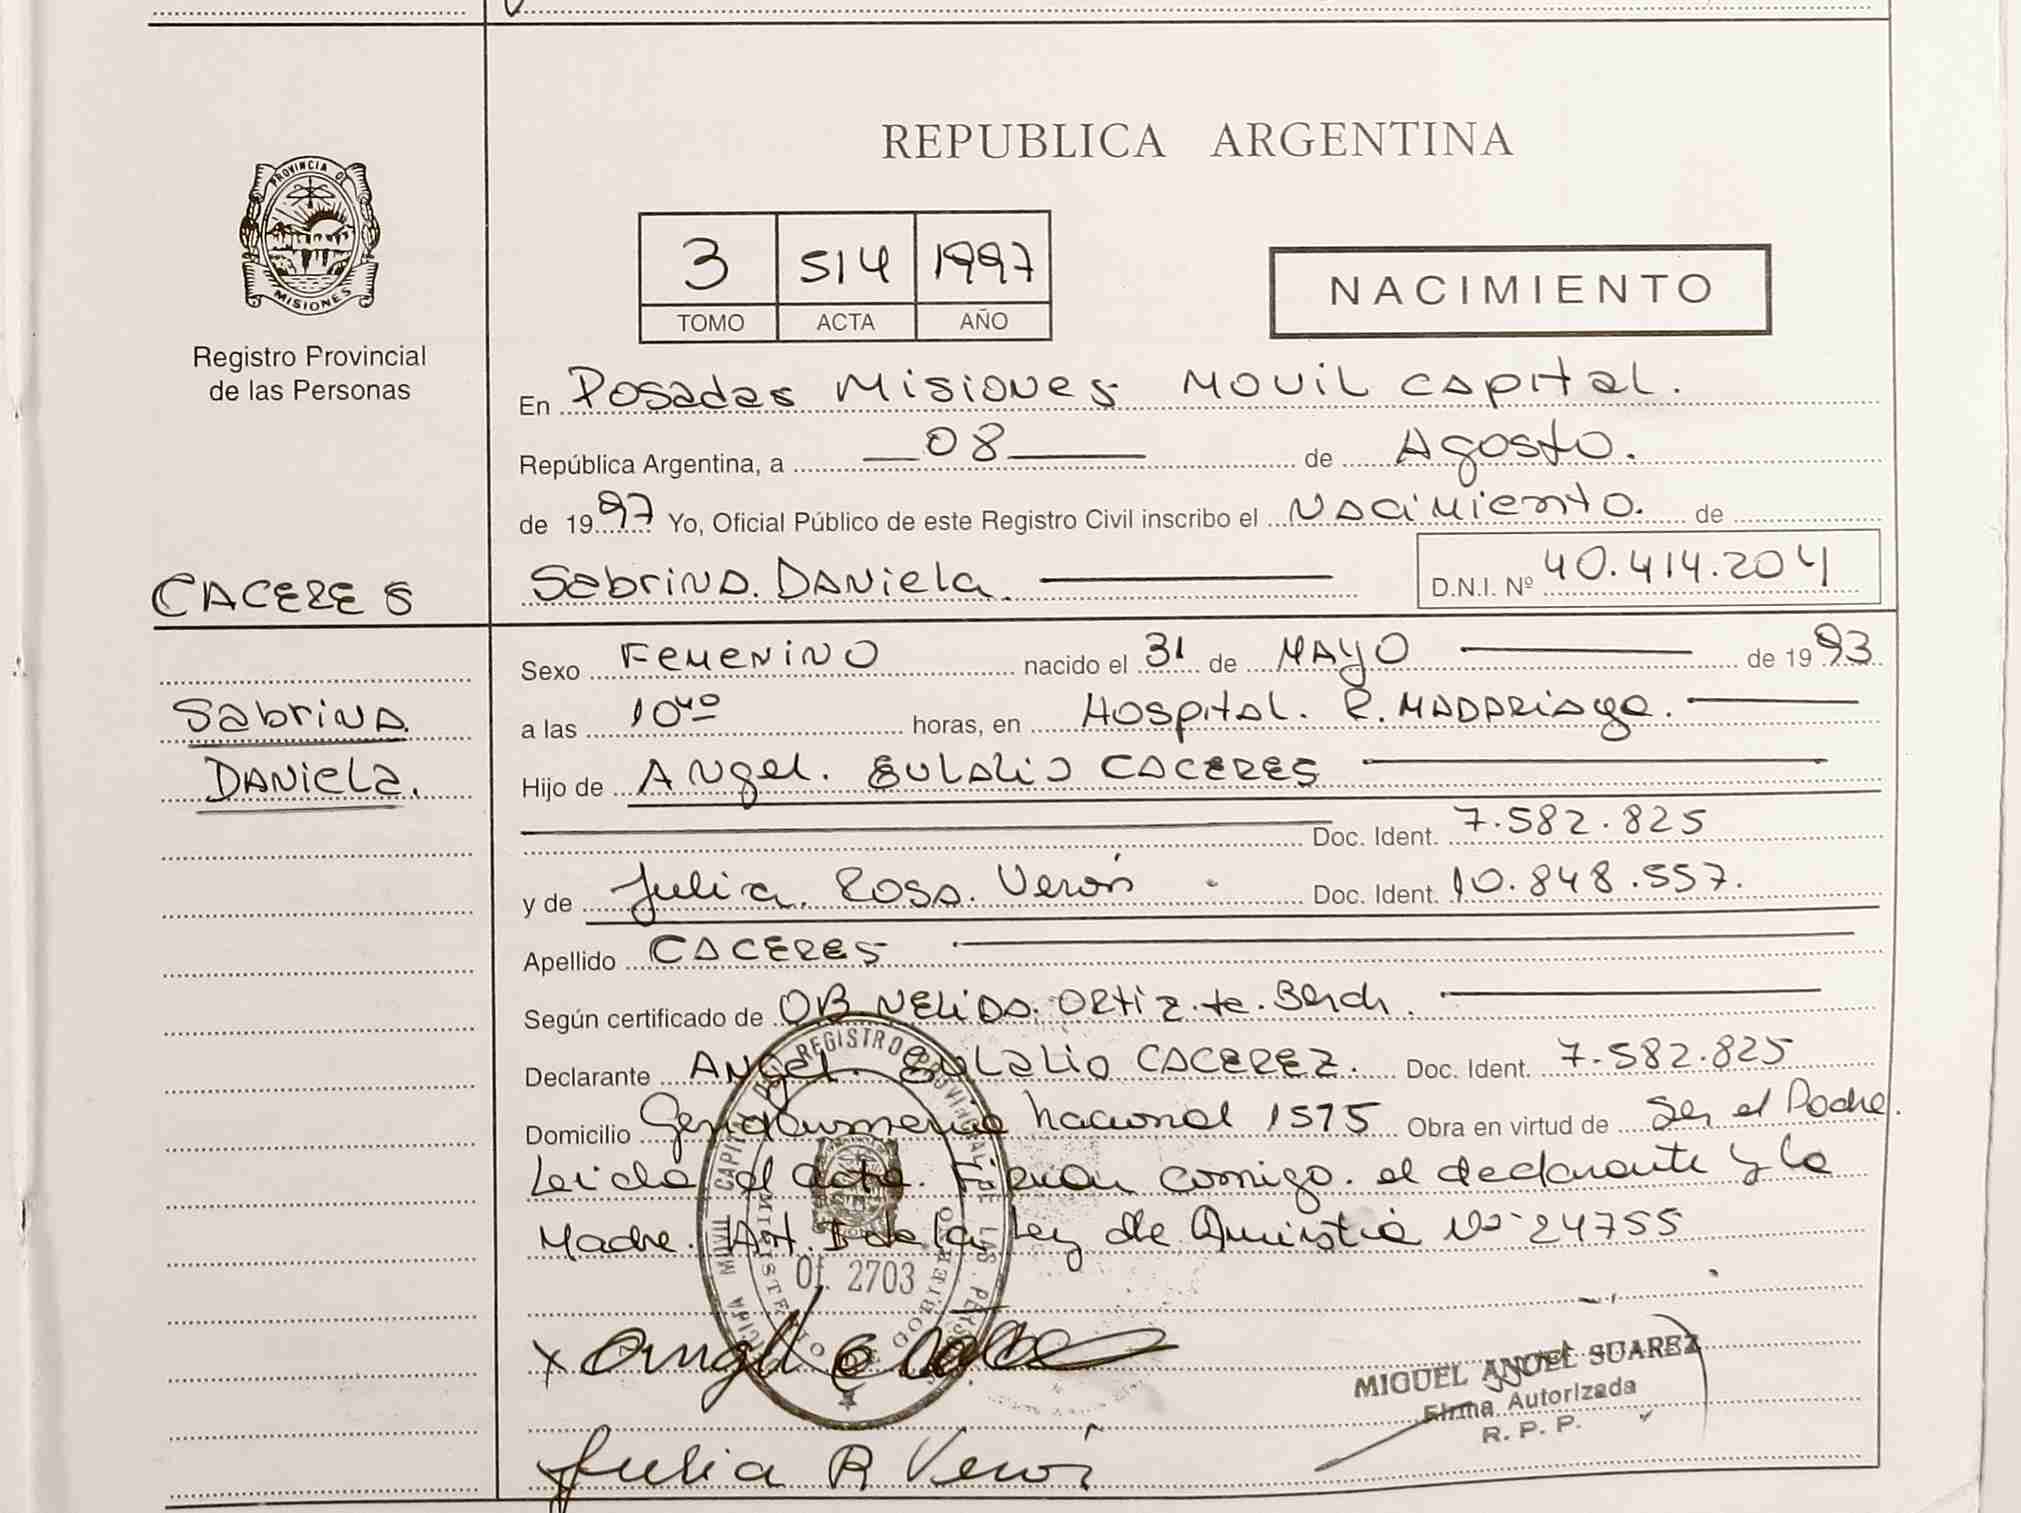 REPUBLICA ARGENTINA
PROVINCIA DE
MISIONES
Registro Provincial
de las Personas
3 514 1997
TOMO ACTA AÑO
NACIMIENTO
En Posadas Misiones Movil Capital.
República Argentina, a 08 de Agosto.
de 1997 Yo, Oficial Público de este Registro Civil inscribo el Nacimiento. de
CACERES
Sabrina. Daniela. D.N.I. Nº 40.414.204
Sexo Femenino nacido el 31 de MAYO de 1993
Sabrina
Daniela.
a las 10 40 horas, en Hospital. R. MADARiaga.
Hijo de Angel. Eulalio CACERES
Doc. Ident. 7.582.825
y de Julia. Rosa. Verón Doc. Ident. 10.848.557.
Apellido CACERES
Según certificado de OB NELIDA. ORTIZ. de.
Declarante Angel. Eulalio CACEREZ. Doc. Ident. 7.582.825
Domicilio Gendarmeria Nacional 1575 Obra en virtud de Ser el Padre.
Leida el acta. Firman conmigo. el declarante y la
Madre. Art. I de la Ley de Amnistia Nº 24755
REGISTRO PROVINCIAL DE LAS
MOVIL CAPITAL
MINISTERIO DE GOBIERNO
Of. 2703
x
Julia R Verón
MIGUEL ANGEL SUAREZ
Firma Autorizada
R. P. P.